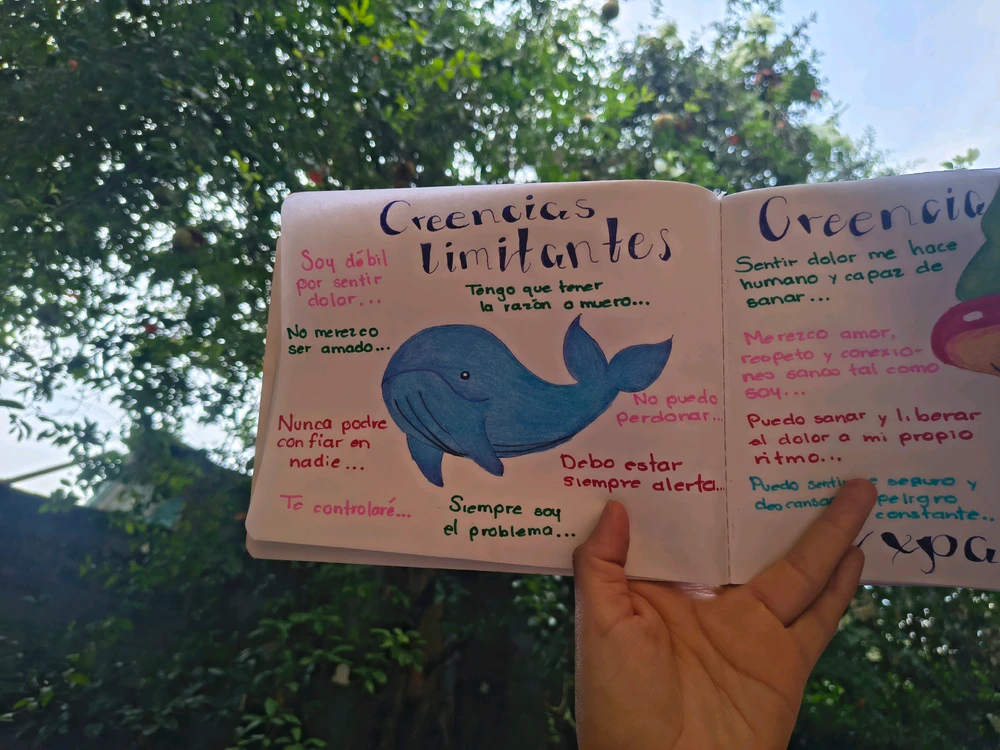 Creencias
limitantes
Soy débil
por sentir
dolor...
Tengo que tener
la razón o muero...
No merezco
ser amado...
No puedo
perdonar...
Nunca podre
confiar en
nadie...
Debo estar
siempre alerta...
Te controlaré...
Siempre soy
el problema...
Sentir dolor me hace
humano y capaz de
sanar...
Merezco amor,
respeto y conexio-
nes sanas tal como
soy...
Puedo sanar y liberar
el dolor a mi propio
ritmo...
Puedo seguro y
peligro
constante..